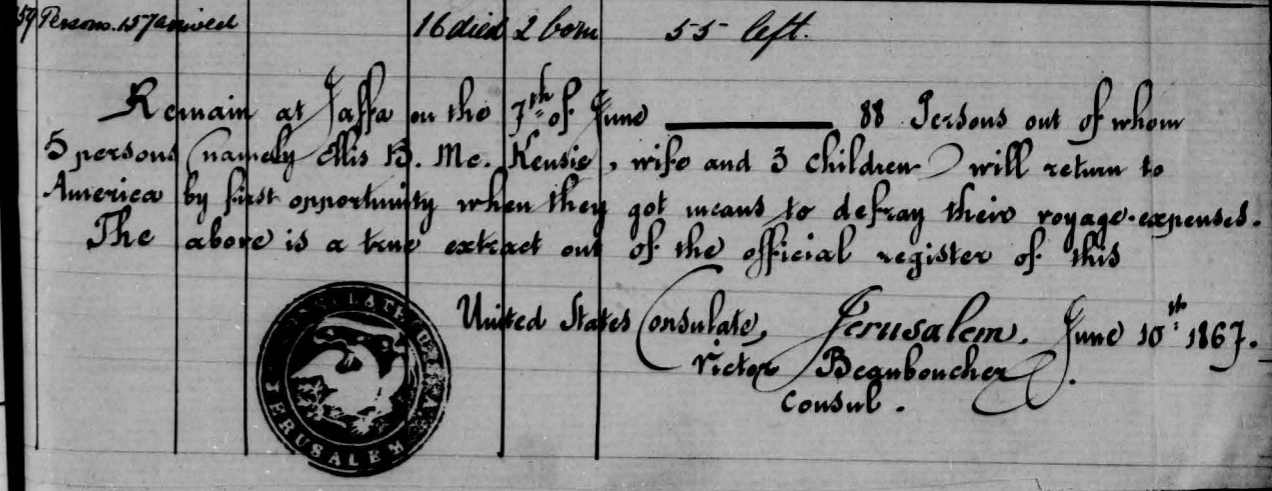 159 Persons. 157 arrived 16 died 2 born 55 left.
Remain at Jaffa on the 7th of June ——— 88 Persons out of whom
5 persons (namely Ellis B. Mc. Kensie, wife and 3 children) will return to
America by first opportunity when they got means to defray their voyage-expenses.
The above is a true extract out of the official register of this
United States Consulate, Jerusalem. June 10th 1867.
Victor Beauboucher
Consul.
CONSULATE
JERUSALEM